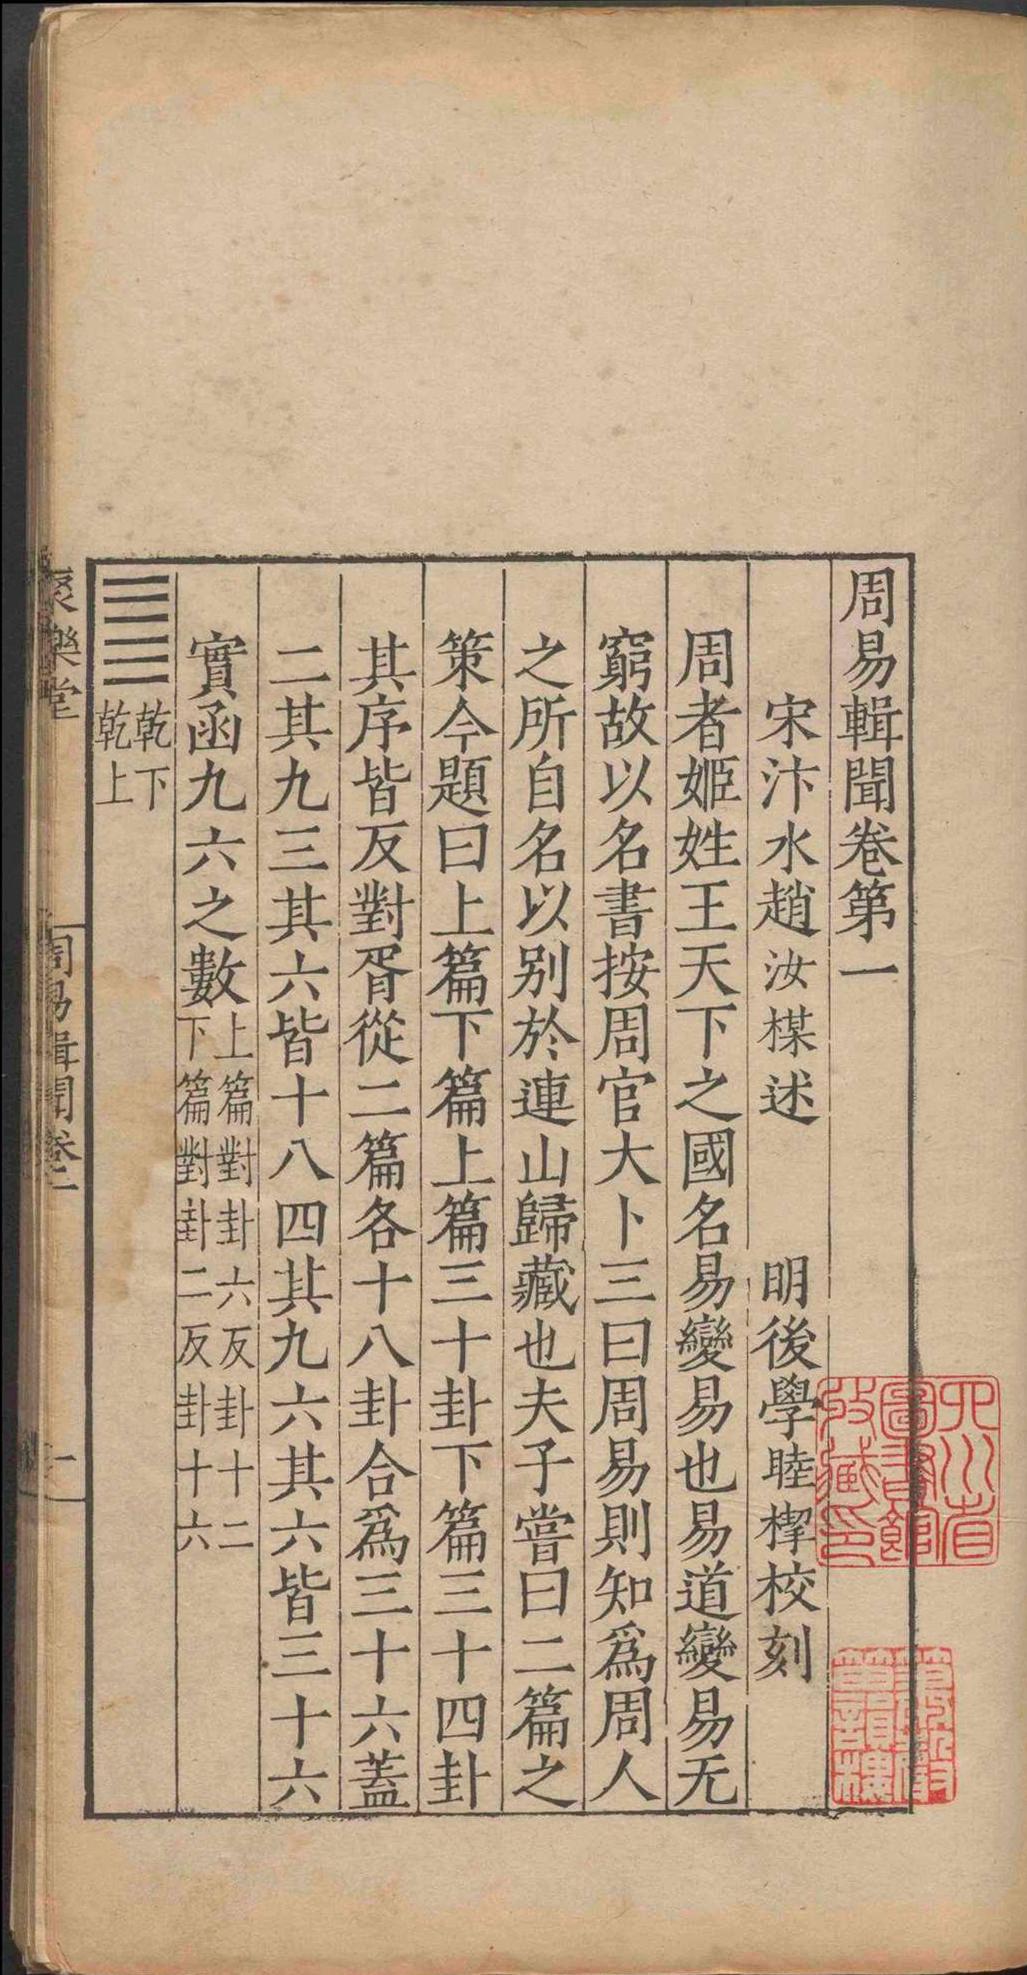 周易輯聞卷第一
宋汴水趙汝楳述　明後學睦㮮校刻
周者姬姓王天下之國名易變易也易道變易无
窮故以名書按周官大卜三曰周易則知為周人
之所自名以別於連山歸藏也夫子嘗曰二篇之
策今題曰上篇下篇上篇三十卦下篇三十四卦
其序皆反對胥從二篇各十八卦合為三十六蓋
二其九三其六皆十八四其九六其六皆三十六
實函九六之數
上篇對卦六反卦十二
下篇對卦二反卦十六
䷀
乾下
乾上
聚樂堂
周易輯聞卷一
一
四川省
圖書館
收藏印